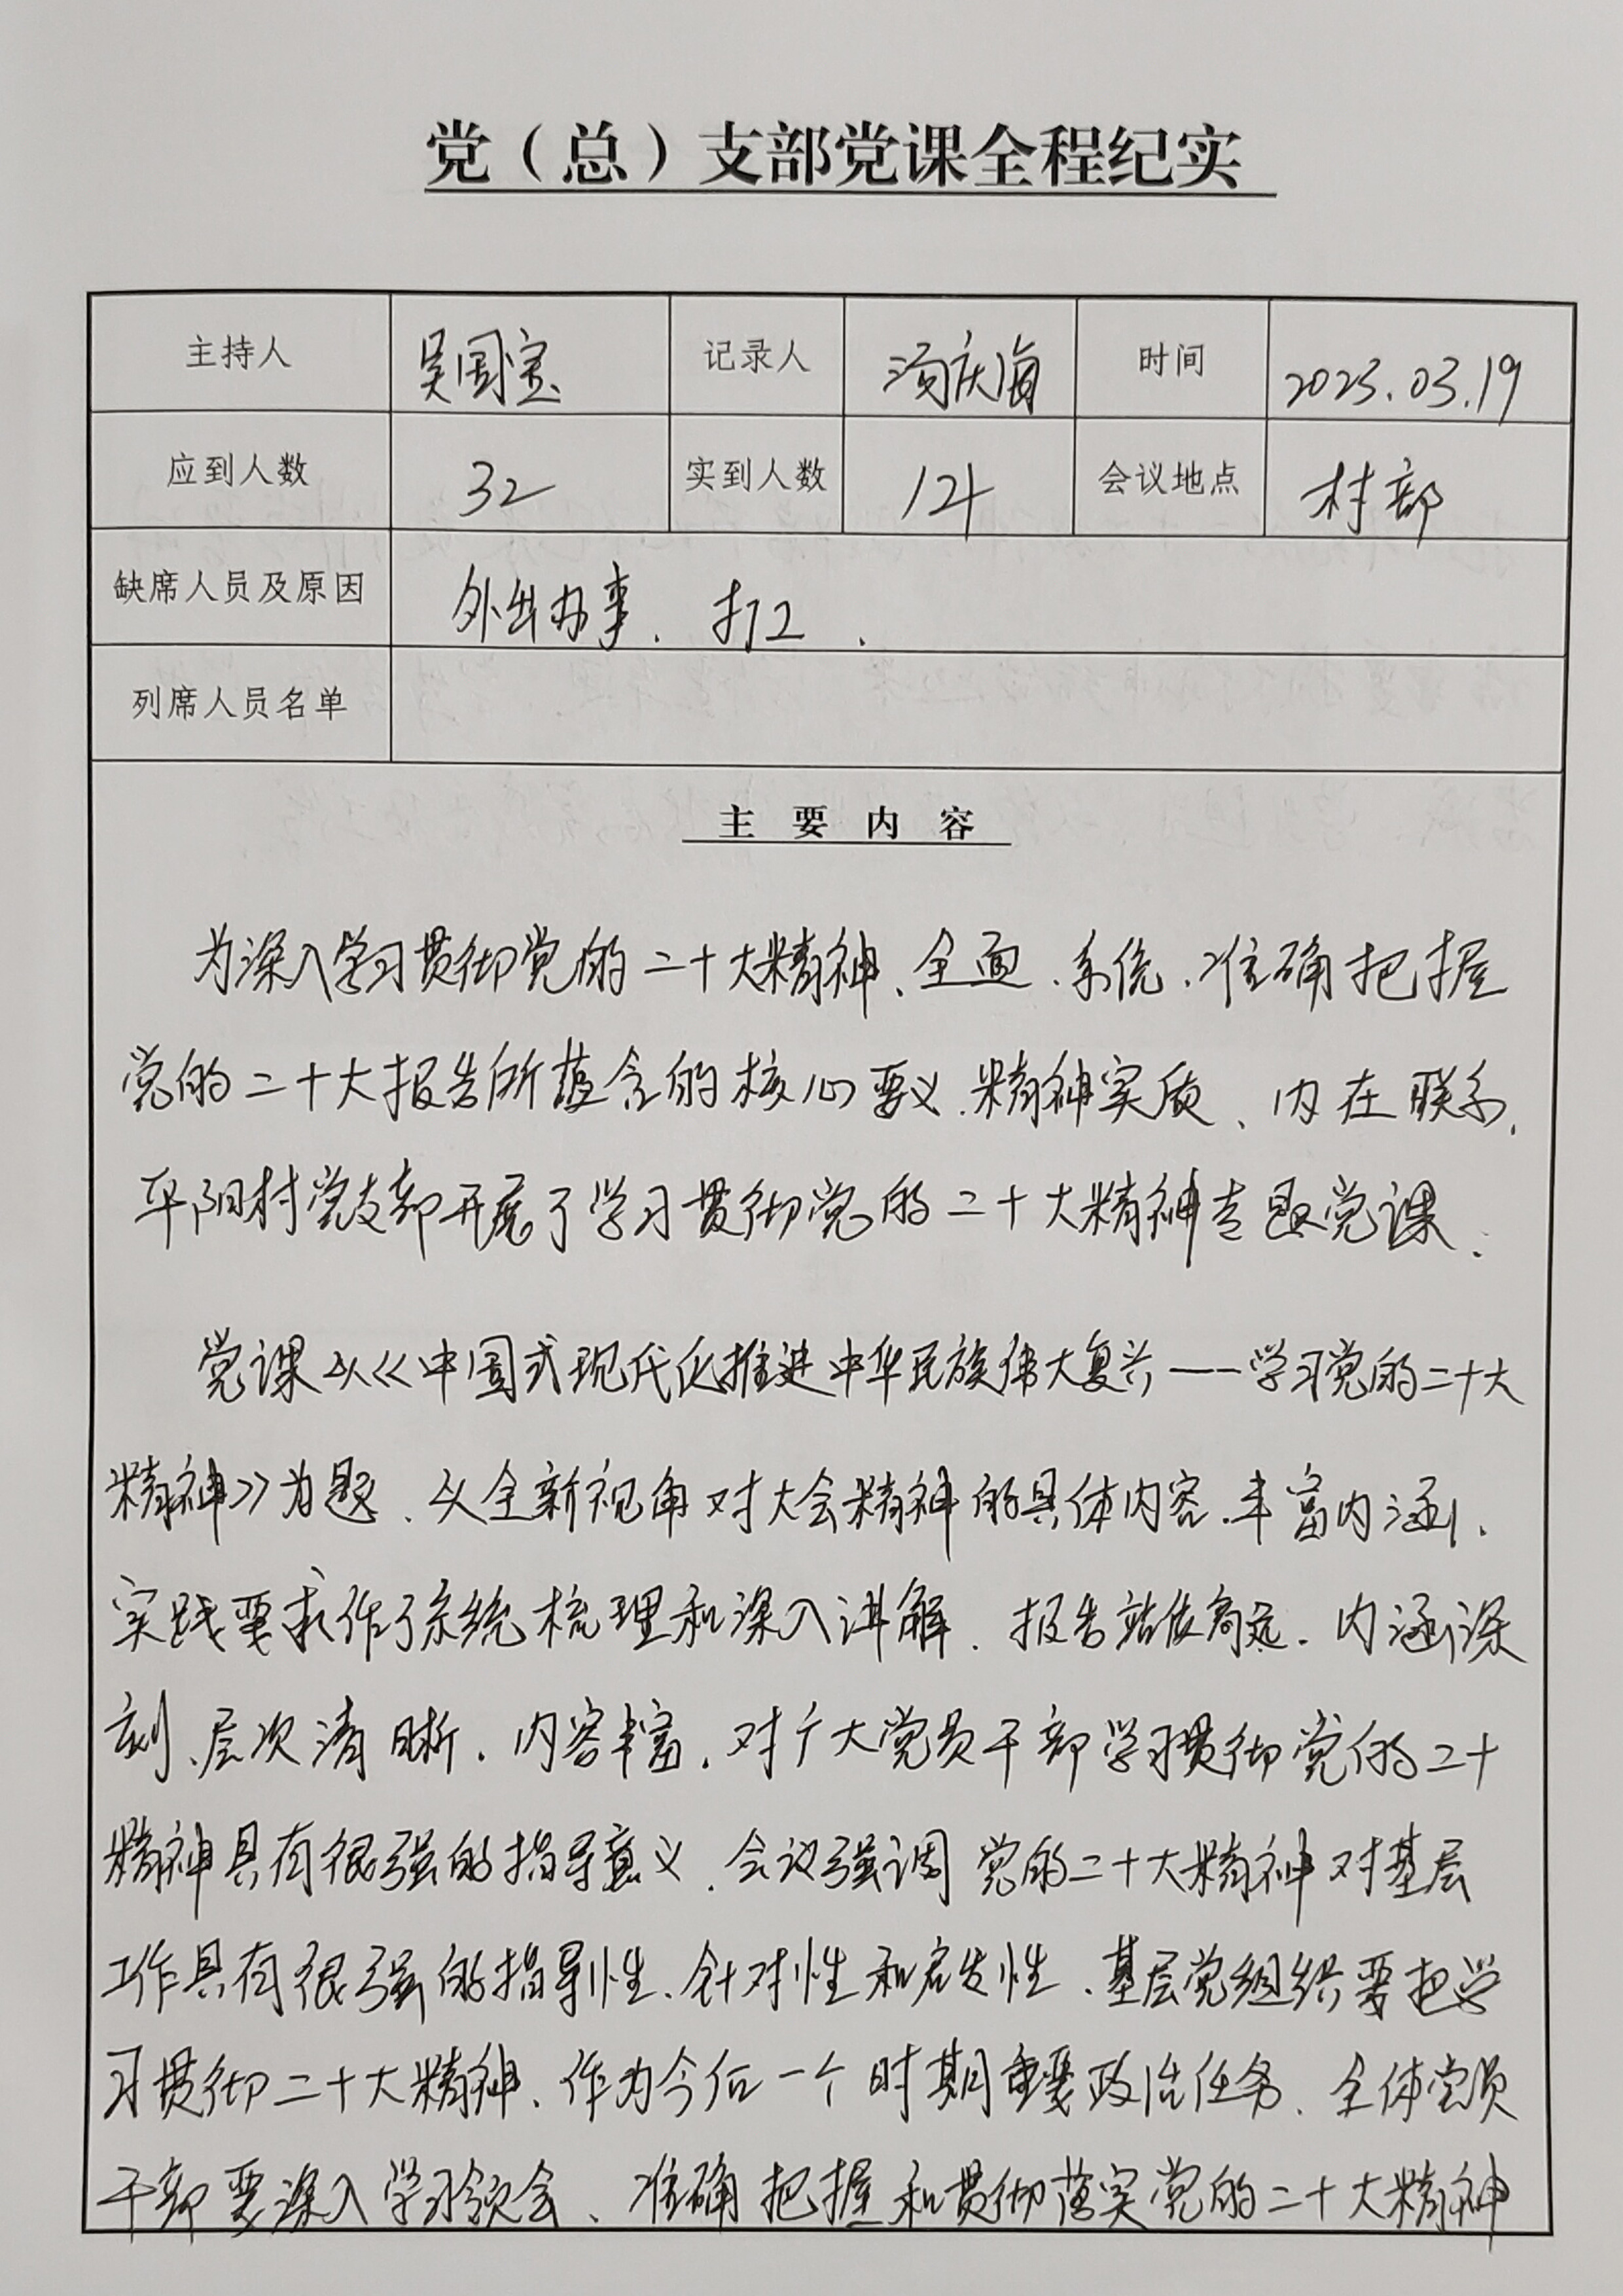 党（总）支部党课全程纪实
主持人 吴国宝 记录人 汤庆海 时间 2023.03.19
应到人数 32 实到人数 14 会议地点 村部
缺席人员及原因 外出办事、打工.
列席人员名单
主要内容
为深入学习贯彻党的二十大精神、全面、系统、准确把握
党的二十大报告所蕴含的核心要义、精神实质、内在联系、
平阳村党支部开展了学习贯彻党的二十大精神专题党课.
党课以《中国式现代化推进中华民族伟大复兴——学习党的二十大
精神》为题、从全新视角对大会精神的具体内容、丰富内涵、
实践要求作了系统梳理和深入讲解、报告站位高远、内涵深
刻、层次清晰、内容丰富、对广大党员干部学习贯彻党的二十
精神具有很强的指导意义、会议强调党的二十大精神对基层
工作具有很强的指导性、针对性和启发性、基层党组织要把学
习贯彻二十大精神、作为今后一个时期重要政治任务、全体党员
干部要深入学习领会、准确把握和贯彻落实党的二十大精神